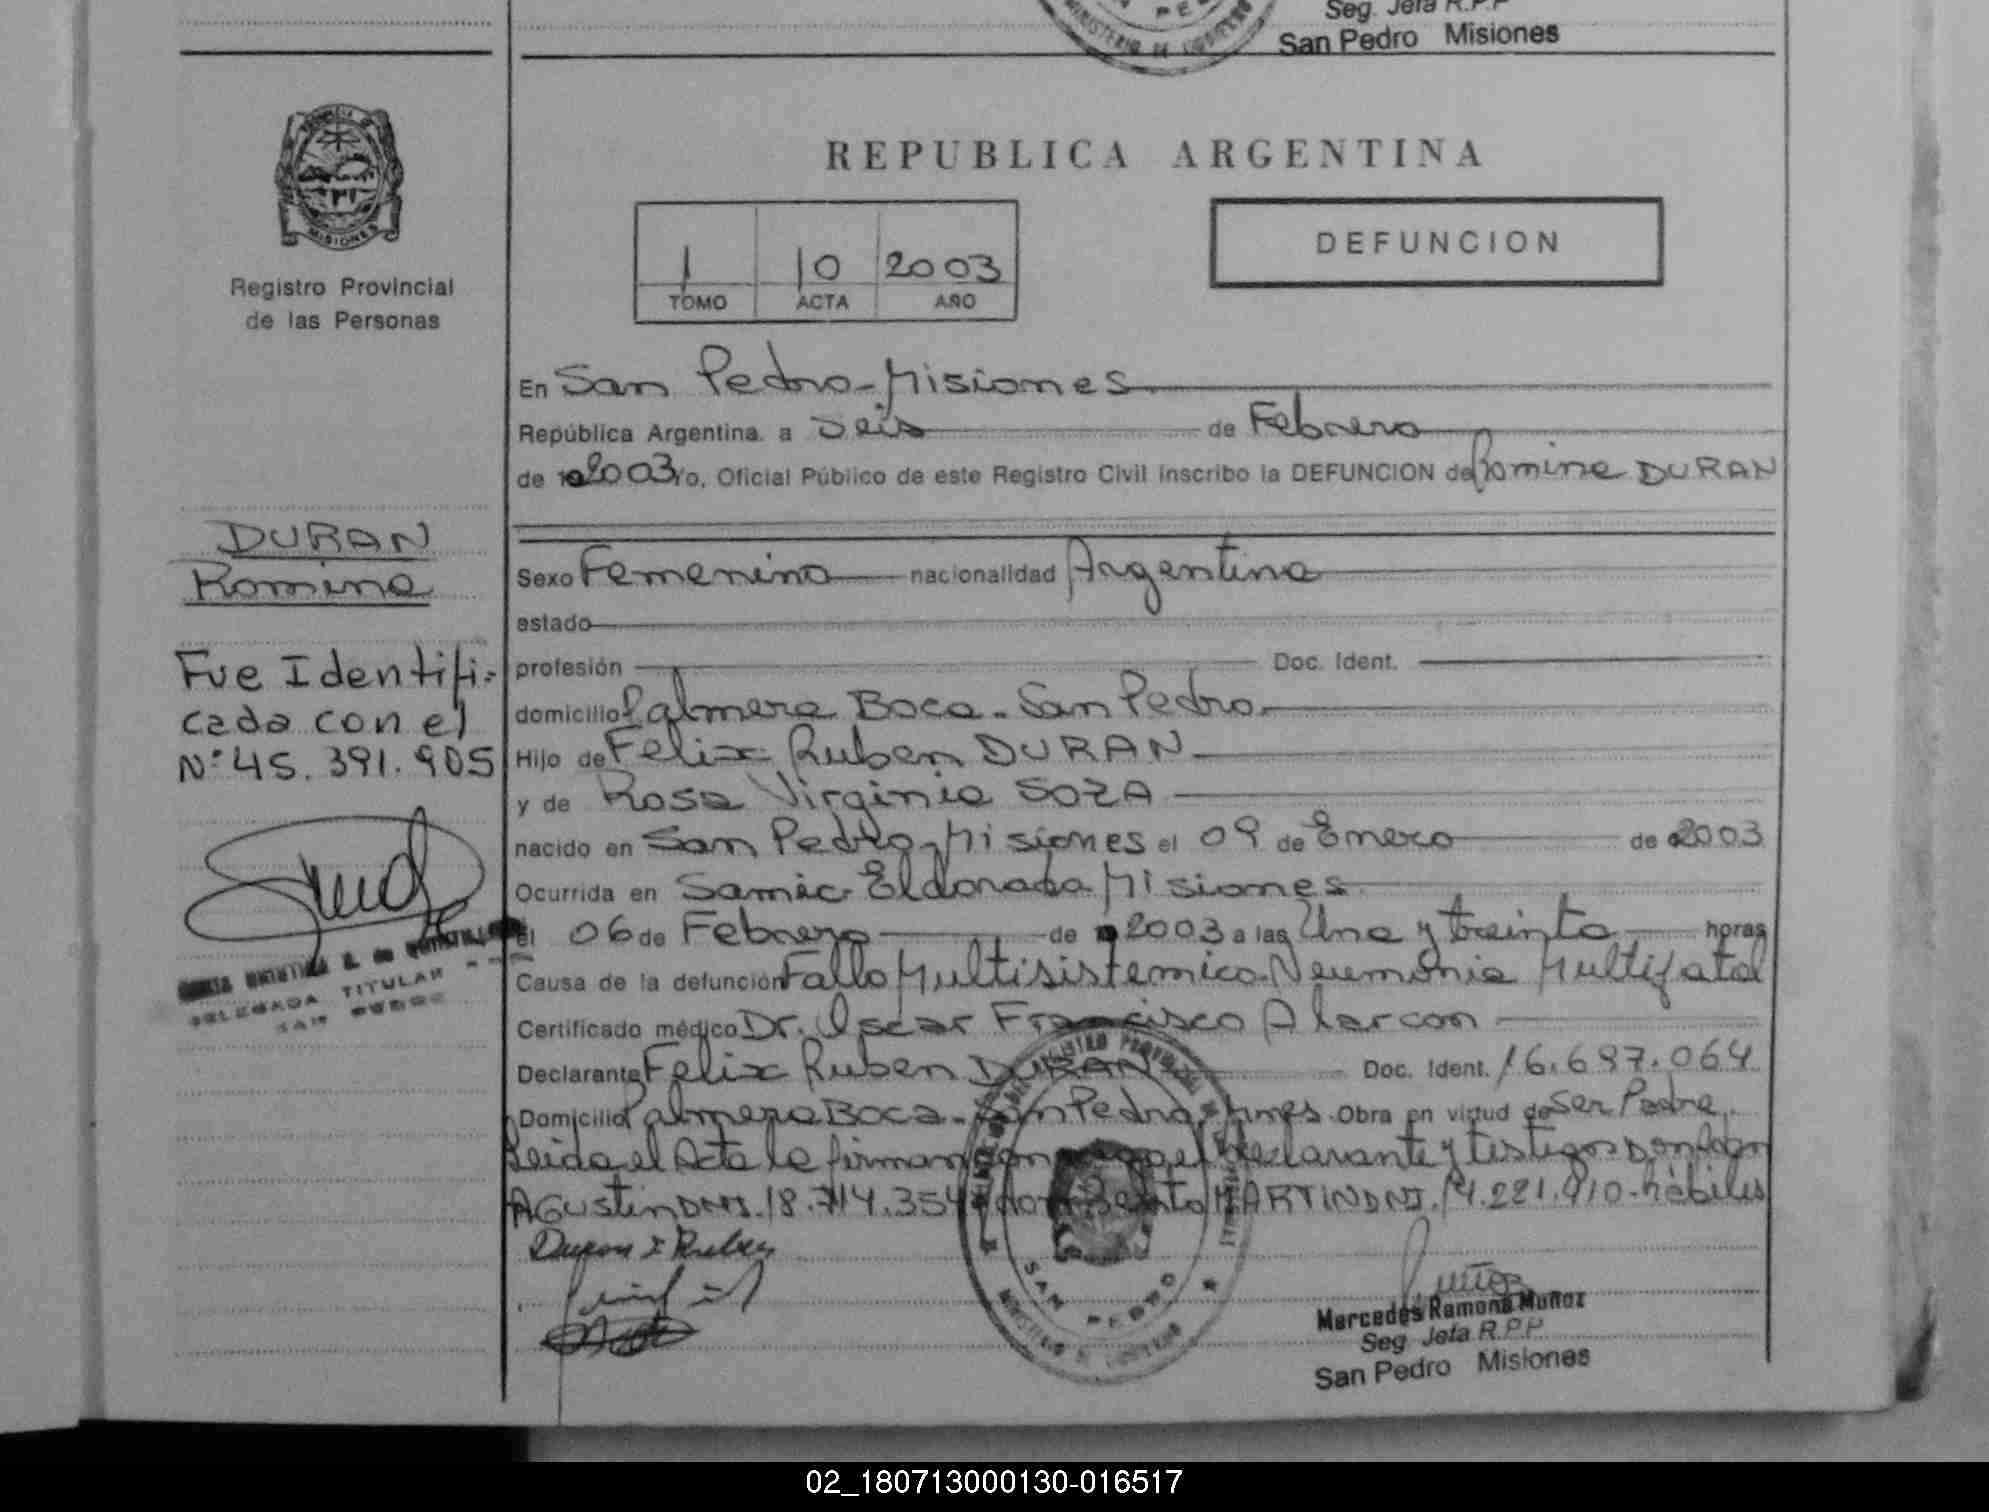 Seg. Jefa R.P.P
San Pedro Misiones
MINISTERIO DE GOBIERNO
PROVINCIA DE
MISIONES
Registro Provincial
de las Personas
REPUBLICA ARGENTINA
1 10 2003
TOMO ACTA AÑO
DEFUNCION
En San Pedro-Misiones
República Argentina. a Seis de Febrero
de 2003 Yo, Oficial Público de este Registro Civil inscribo la DEFUNCION de Romina DURAN
DURAN
Romina
Fue Identifi-
cada con el
N° 45.391.905
DELEGADA TITULAR
SAN PEDRO
Sexo Femenino nacionalidad Argentina
estado
profesión Doc. Ident.
domicilio Palmera Boca - San Pedro
Hijo de Felix Ruben DURAN
y de Rosa Virginia SOZA
nacido en San Pedro-Misiones el 09 de Enero de 2003
Ocurrida en Samic Eldorado Misiones
el 06 de Febrero de 2003 a las Una y treinta horas
Causa de la defunción Fallo Multisistemico-Neumonia Multifatal
Certificado médico Dr. Oscar Francisco Alarcon
Declarante Felix Ruben DURAN Doc. Ident. 16.697.064
Domicilio Palmera Boca - San Pedro, Mnes. Obra en virtud de Ser Padre.
Leida el Acta la firman el Declarante y testigos Don
AGustin DNI. 18.714.354 MARTIN DNI. 14.221.910-hábiles
Duran F Ruben
SAN PEDRO
MINISTERIO DE GOBIERNO
Mercedes Ramona Muñoz
Seg Jefa R.P.P
San Pedro Misiones
02_180713000130-016517